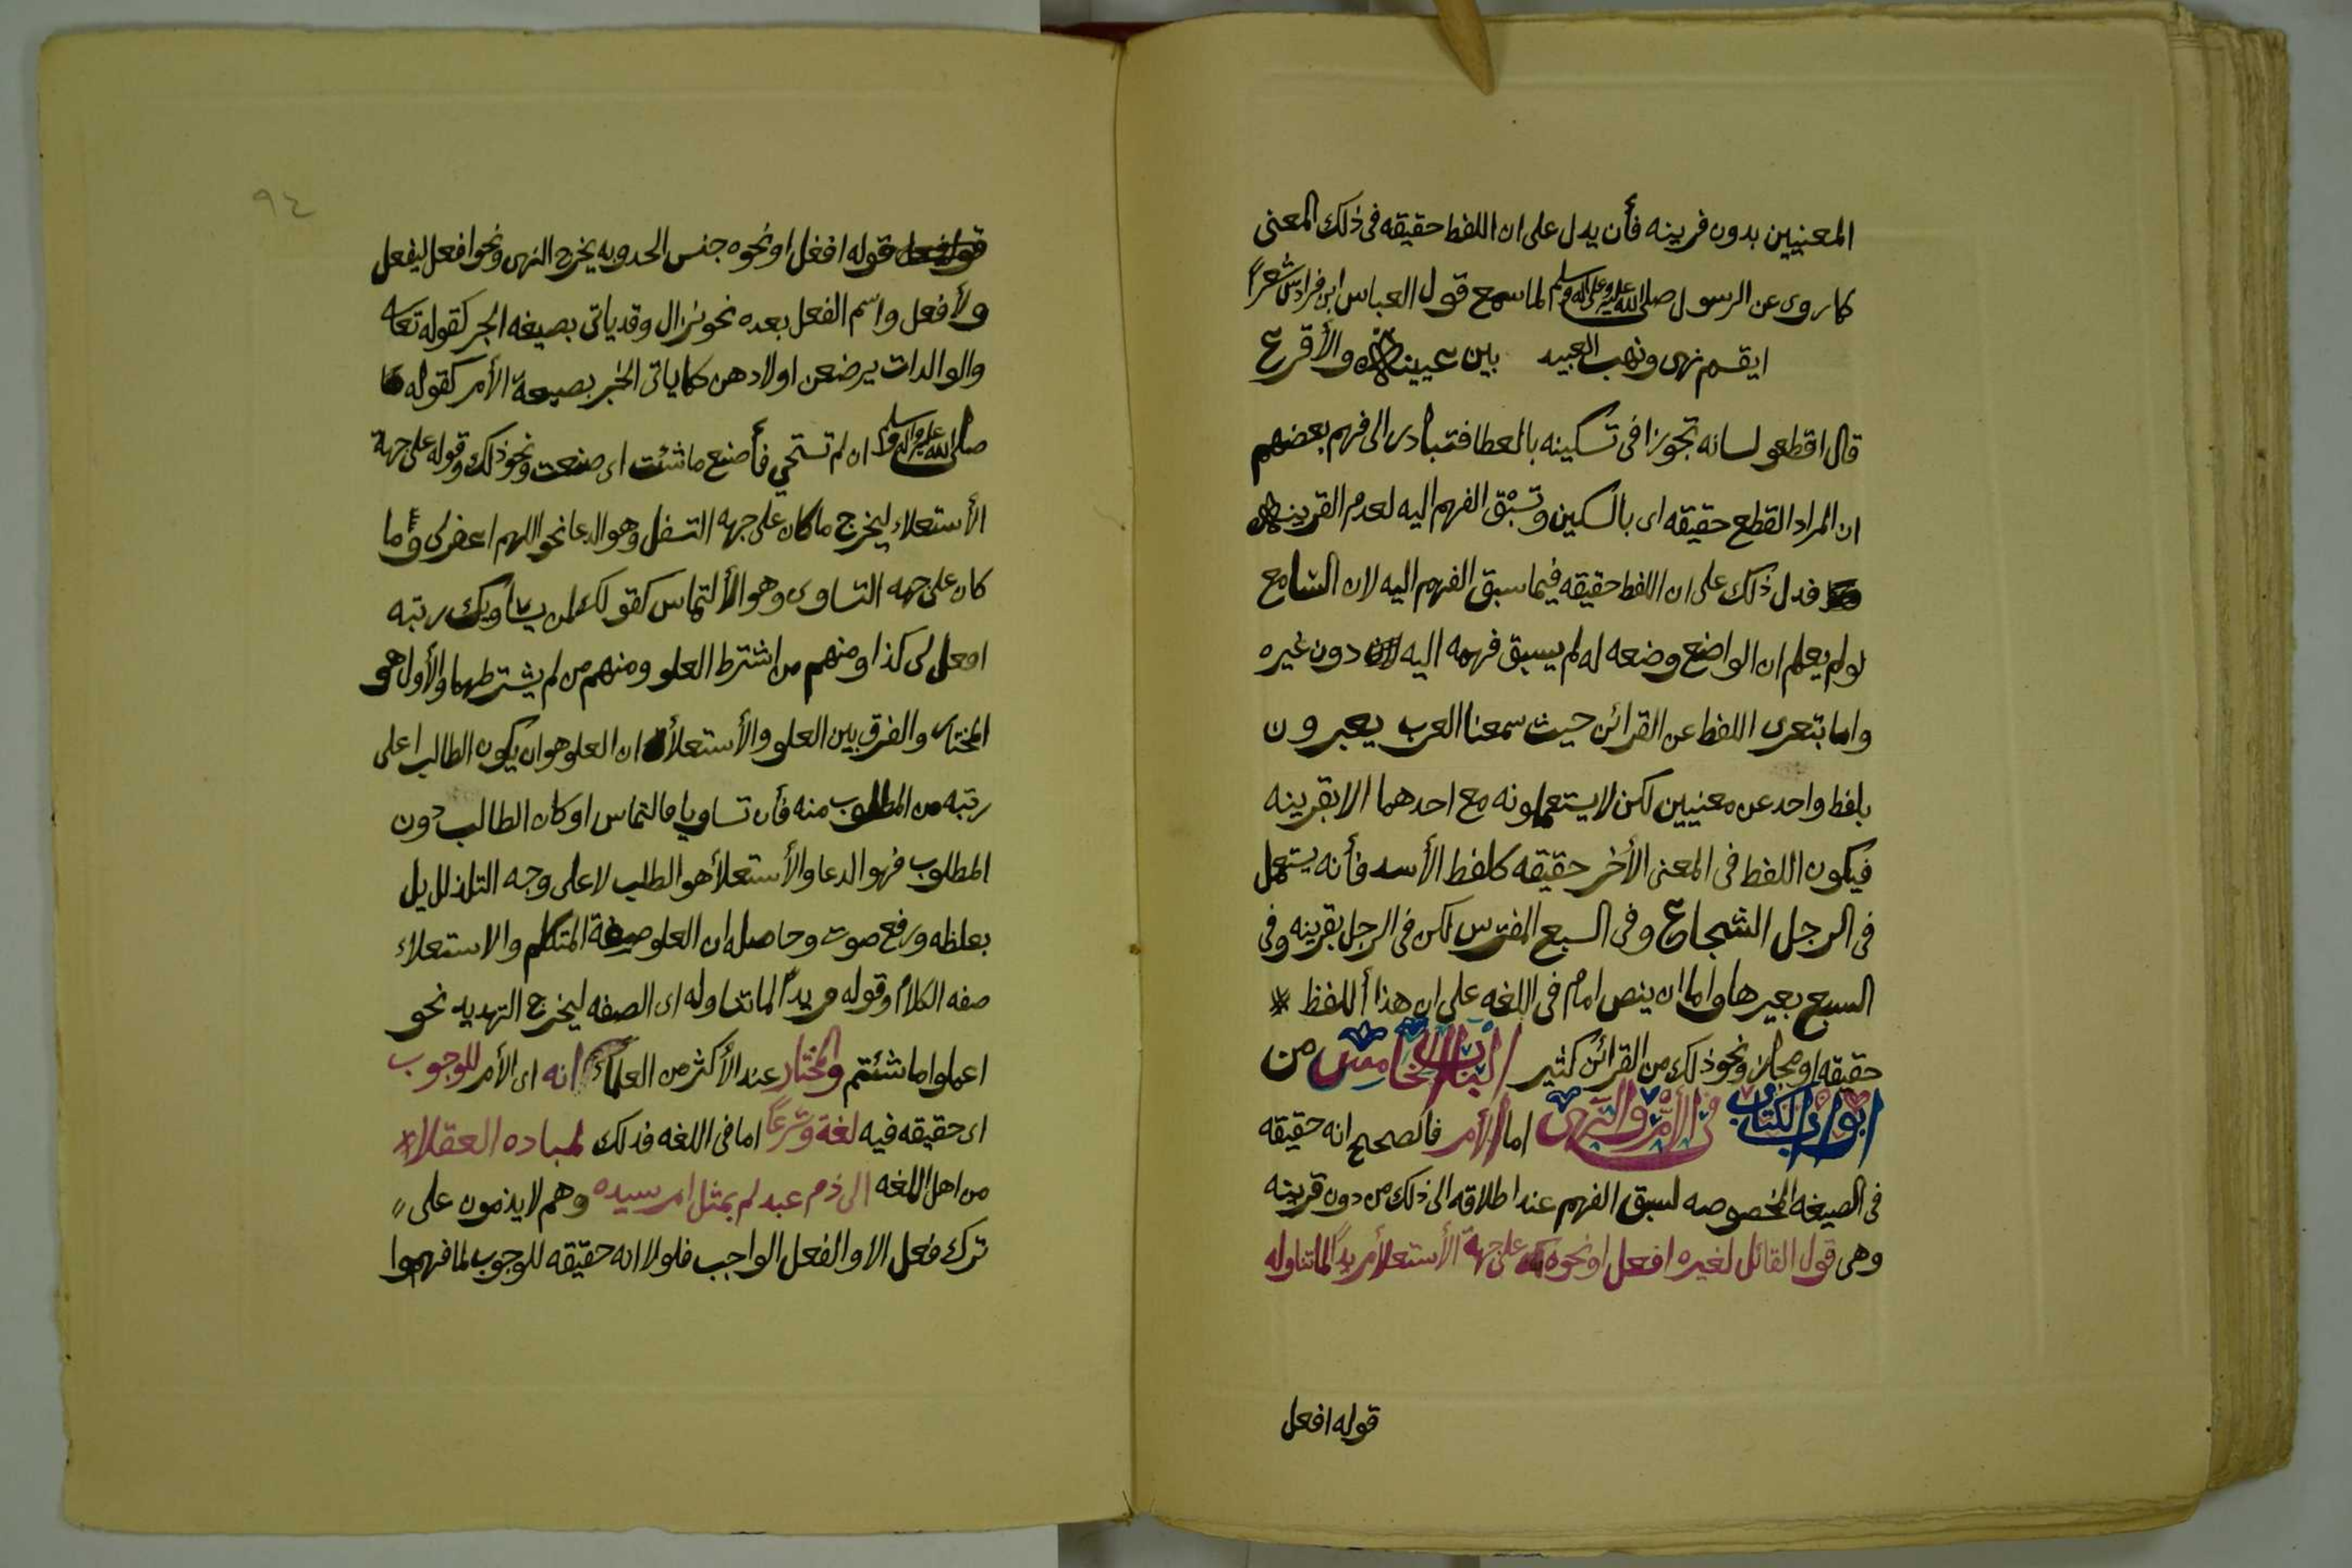 المعنيين بدون قرينه فأن يدل على ان اللفظ حقيقه فى ذلك المعنى
كما روى عن الرسول صلى الله عليه وعلى اله وسلم لما سمع قول العباس ابن فرادس شعراً
ايقسم نهبى ونهب العبيد بين عيينه والأقرع
قال اقطعو لسانه تجوزا فى تسكينه بالعطا فتبادر الى فهم بعضهم
ان المراد القطع حقيقه اى بالسكين وتسبق الفهم اليه لعدم القرينه
فدل ذلك على ان اللفظ حقيقه فيما سبق الفهم اليه لان السامع
لو لم يعلم ان الواضع وضعه له لم يسبق فهمه اليه دون غيره
واما بتعرى اللفظ عن القرائن حيث سمعنا العرب يعبرون
بلفظ واحد عن معنيين لكن لا يستعملونه مع احدهما الا بقرينه
فيكون اللفظ فى المعنى الأخر حقيقه كلفظ الأسد فأنه يستعمل
فى الرجل الشجاع وفى السبع المفترس لكن فى الرجل بقرينه وفى
السبع بغيرها واما ان ينص امام فى اللغه على ان هذا اللفظ
حقيقه او مجاز ونحو ذلك من القرائن كثير الباب الخامس من
ابواب الكتاب فى الأمر والنهى اما الأمر فالصحيح انه حقيقه
فى الصيغه المخصوصه لسبق الفهم عند اطلاقه الى ذلك من دون قرينه
وهى قول القائل لغيره افعل او نحوه على جهة الأستعلأ مريداً لما تناوله
قوله افعل
٩٤
قوله افعل او نحوه جنس الحد وبه يخرج النهى ونحو افعل ليفعل
ولأفعل واسم الفعل بعده نحو نزال وقد ياتى بصيغه الخبر كقوله تعا
والوالدات يرضعن اولادهن كما ياتى الخبر بصيغة الأمر كقوله
صلى الله عليه واله وسلم ان لم تستحي فأصنع ما شئت اى صنعت ونحو ذلك وقوله على جهة
الأستعلاء ليخرج ما كان على جهه التسفل وهو الدعا نحو اللهم اغفر لى وما
كان على جهه التساوى وهو الألتماس كقولك لمن يساويك رتبه
افعل لى كذا ومنهم من اشترط العلو ومنهم من لم يشترطهما والأول هو
المختار والفرق بين العلو والأستعلأ ان العلو هو ان يكون الطالب اعلى
رتبه من المطلوب منه فأن تساويا فالتماس او كان الطالب دون
المطلوب فهو الدعا والأستعلأ هو الطلب لا على وجه التذلل بل
بغلظه ورفع صوت وحاصله ان العلو صفة المتكلم والاستعلاء
صفه الكلام وقوله مريداً لما تناوله اى الصفه ليخرج التهديد نحو
اعملوا ما شئتم والمختار عند الأكثر من العلماء انه اى الأمر للوجوب
اى حقيقه فيه لغة وشرعاً اما فى اللغه فذلك لمباده العقلاء
من اهل اللغه الى ذم عبد لم يمثل امر سيده وهم لا يذمون على
ترك فعل الا والفعل الواجب فلولا انه حقيقه للوجوب لما فهموا